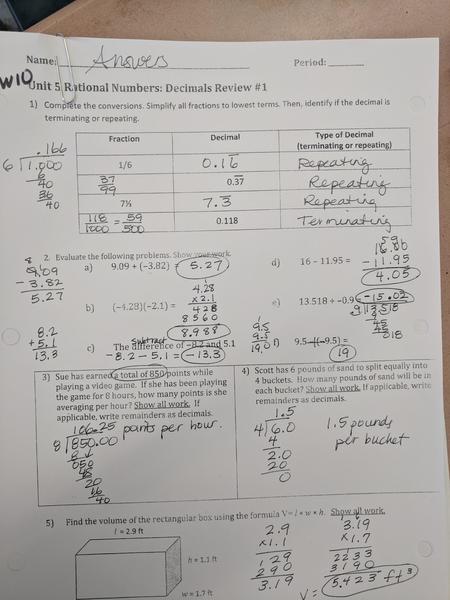 Name: Answers Period:
W10
Unit 5 Rational Numbers: Decimals Review #1
1) Complete the conversions. Simplify all fractions to lowest terms. Then, identify if the decimal is
terminating or repeating.
Fraction Decimal Type of Decimal
(terminating or repeating)
1/6 0.16̅ Repeating
37/99 0.3̅7̅ Repeating
7⅓ 7.3̅ Repeating
118/1000 = 59/500 0.118 Terminating
.166
6 1.000
6
40
36
40
2. Evaluate the following problems. Show your work.
a) 9.09 + (−3.82) = 5.27
9.09
− 3.82
5.27
b) (−4.28)(−2.1) = 8.988
4.28
x 2.1
428
8560
8.2
+ 5.1
13.3
Subtract
c) The difference of −8.2 and 5.1
−8.2 − 5.1 = −13.3
d) 16 − 11.95 = 4.05
16.00
− 11.95
e) 13.518 ÷ −0.9 = −15.02
9 113.518
45
45
018
f) 9.5 − (−9.5) =
19
9.5
9.5
19.0
3) Sue has earned a total of 850 points while
playing a video game. If she has been playing
the game for 8 hours, how many points is she
averaging per hour? Show all work. If
applicable, write remainders as decimals.
106.25 points per hour.
8 850.00
8
050
48
20
16
40
4) Scott has 6 pounds of sand to split equally into
4 buckets. How many pounds of sand will be in
each bucket? Show all work. If applicable, write
remainders as decimals.
1.5
4 6.0
4
2.0
20
0
1.5 pounds
per bucket
5) Find the volume of the rectangular box using the formula V= l • w • h. Show all work.
l = 2.9 ft
h = 1.1 ft
w = 1.7 ft
2.9
x1.1
29
290
3.19
3.19
x1.7
2233
3190
V= 5.423 ft³